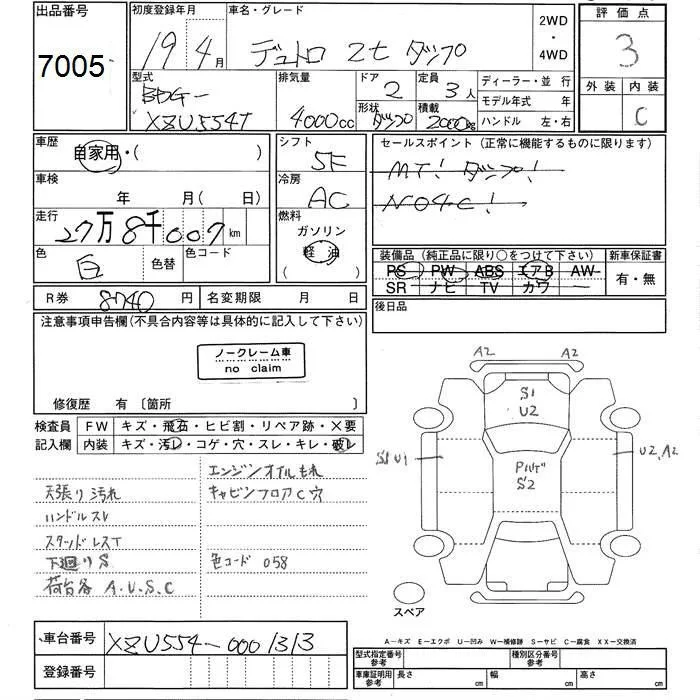 出品番号
7005
初度登録年月
19年 4月
車名・グレード
デュトロ 2t ダンプ
2WD
・
4WD
評価点
3
外装 内装
C
型式
BDG-
XZU554T
排気量
4000cc
ドア
2
形状
ダンプ
定員
3人
積載
2000kg
ディーラー・並行
モデル年式 年
ハンドル 左・右
車歴
自家用・( )
車検
年 月(日)
走行
27万8千007km
色
白
色替
色コード
シフト
5F
冷房
AC
燃料
ガソリン
軽油
セールスポイント(正常に機能するものに限ります)
MT! ダンプ!
N04C!
装備品(純正品に限り○をつけて下さい)
PS PW ABS エアB AW
SR ナビ TV カワ
新車保証書
有・無
後日品
R券 8740円
名変期限 月 日
注意事項申告欄(不具合内容等は具体的に記入して下さい)
ノークレーム車
no claim
修復歴 有〔箇所 〕
検査員
記入欄
FW キズ・飛石・ヒビ割・リペア跡・X要
内装 キズ・汚レ・コゲ・穴・スレ・キレ・破レ
エンジンオイルもれ
天張り汚れ
キャビンフロアC穴
ハンドルスレ
スタッドレスT
下廻りS
色コード 058
荷台各 A.U.S.C
A2 A2
S1
U2
S1 U1
U2, A2
S2
スペア
A-キズ E-エクボ U-凹み W-補修跡 S-サビ C-腐食 XX-交換済
車台番号
XZU554-0001313
登録番号
型式指定番号
参考
種別区分番号
参考
車庫証明用
参考
長さ cm
幅 cm
高さ cm